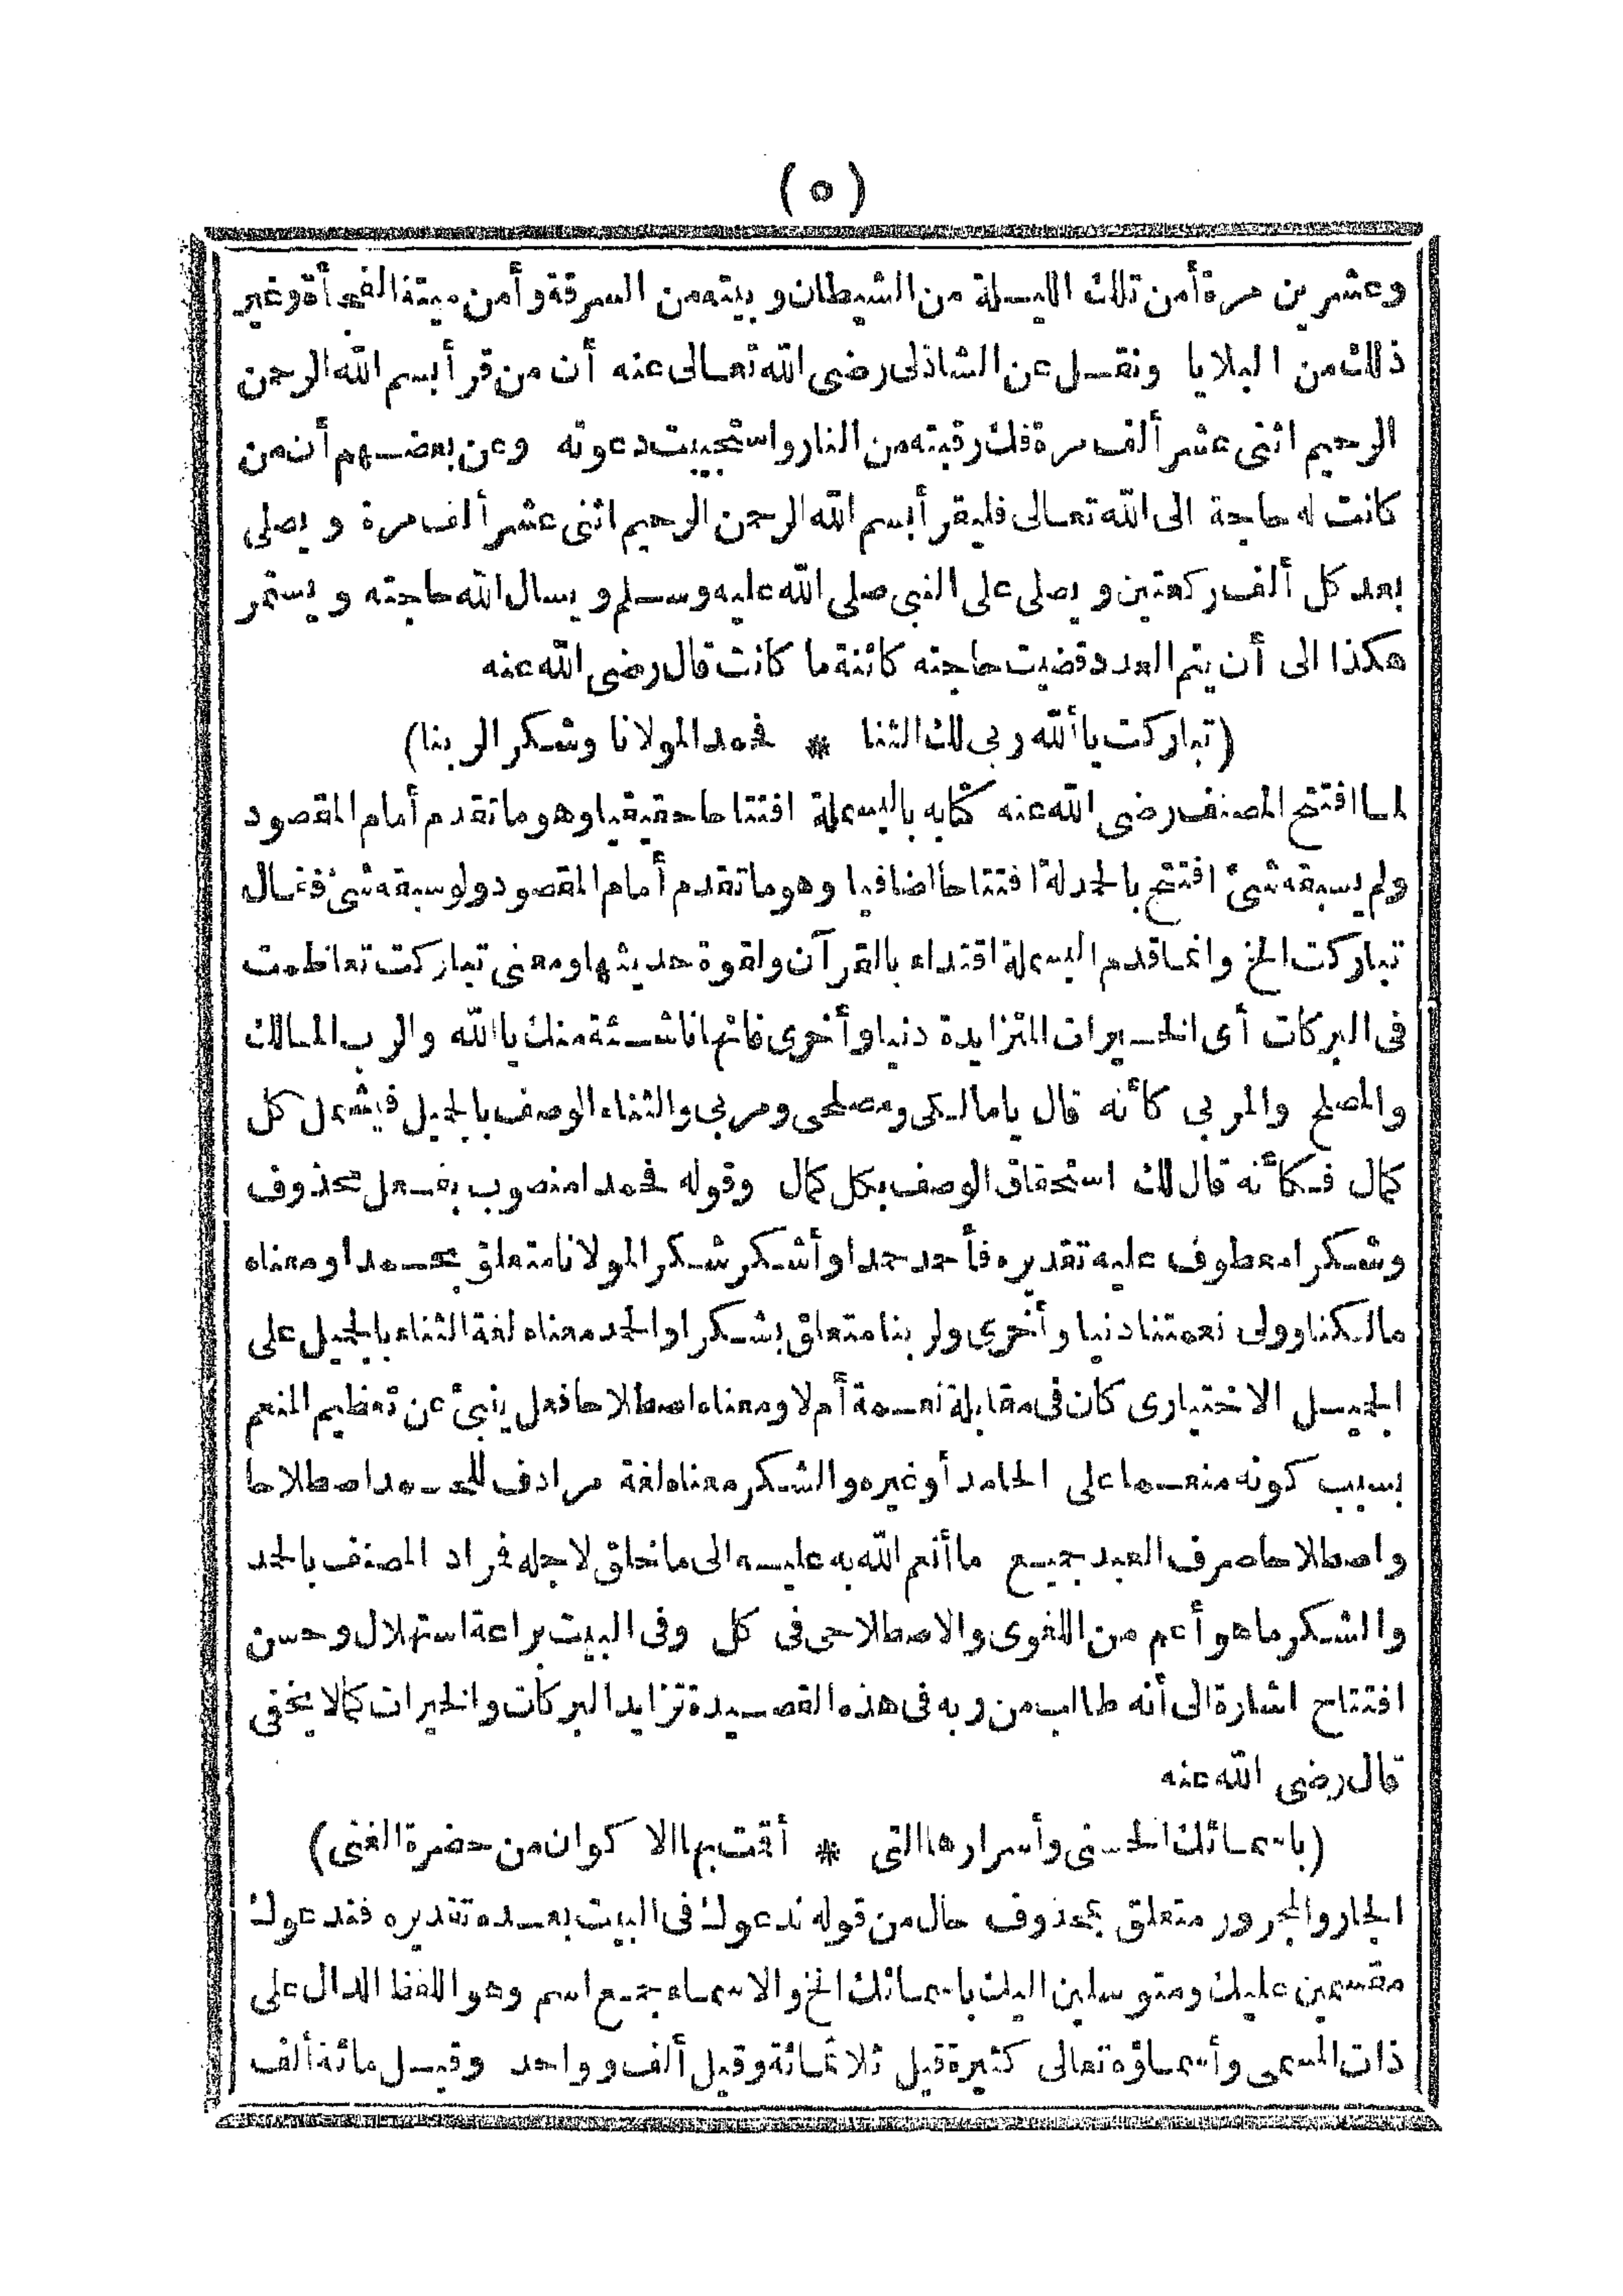 (٥)
وعشرين مرة أمن تلك الليلة من الشيطان وبيته من السرقة وأمن ميتة الفجأة وغير
ذلك من البلايا ونقل عن الشاذلى رضى الله تعالى عنه أن من قرأ بسم الله الرحمن
الرحيم اثنى عشر ألف مرة فك رقبته من النار واستجيبت دعوته وعن بعضهم أن من
كانت له حاجة الى الله تعالى فليقرأ بسم الله الرحمن الرحيم اثنى عشر ألف مرة ويصلى
بعد كل ألف ركعتين ويصلى على النبى صلى الله عليه وسلم ويسال الله حاجته ويستمر
هكذا الى أن يتم العدد قضيت حاجته كائنة ما كانت قال رضى الله عنه
(تباركت يا ألله ربى لك الثنا * فحمدا لمولانا وشكرا لربنا)
لما افتتح المصنف رضى الله عنه كتابه بالبسملة افتتاحا حقيقيا وهو ما تقدم أمام المقصود
ولم يسبقه شئ افتتح بالحمدلة افتتاحا اضافيا وهو ما تقدم أمام المقصود ولو سبقه شئ فقال
تباركت الخ وانما قدم البسملة اقتداء بالقرآن ولقوة حديثها ومعنى تباركت تعاظمت
فى البركات أى الخيرات المتزايدة دنيا وأخرى فانها ناشئة منك يا الله والرب المالك
والمصلح والمربى كأنه قال يا مالكى ومصلحى ومربى والثناء الوصف بالجميل فيشمل كل
كمال فكأنه قال لك استحقاق الوصف بكل كمال وقوله فحمدا منصوب بفعل محذوف
وشكرا معطوف عليه تقديره فأحمد حمدا وأشكر شكرا لمولانا متعلق بحمدا ومعناه
مالكنا وولى نعمتنا دنيا وأخرى ولربنا متعلق بشكرا والحمد معناه لغة الثناء بالجميل على
الجميل الاختيارى كان فى مقابلة نعمة أم لا ومعناه اصطلاحا فعل ينبئ عن تعظيم المنعم
بسبب كونه منعما على الحامد أو غيره والشكر معناه لغة مرادف للحمد اصطلاحا
واصطلاحا صرف العبد جميع ما أنعم الله به عليه الى ما خلق لاجله فراد المصنف بالحمد
والشكر ما هو أعم من اللغوى والاصطلاحى فى كل وفى البيت براعة استهلال وحسن
افتتاح اشارة الى أنه طالب من ربه فى هذه القصيدة تزايد البركات والخيرات كما لا يخفى
قال رضى الله عنه
(باسمائك الحسنى وأسرارها التى * أقمت بها الاكوان من حضرة الغنى)
الجار والمجرور متعلق بمحذوف حال من قوله ندعوك فى البيت بعده تقديره فندعوك
مقسمين عليك ومتوسلين اليك باسمائك الخ والاسماء جمع اسم وهو اللفظ الدال على
ذات المسمى وأسماؤه تعالى كثيرة قيل ثلاثمائة وقيل ألف وواحد وقيل مائة ألف